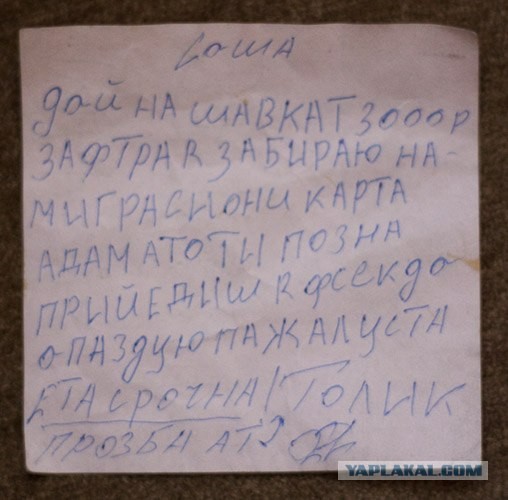 Соша
Дой НА ШАВКАТ 3000Р
ЗАФТРА Я ЗАБИРАЮ НА-
МИГРАСИОНИ КАРТА
АДАМ АТО ТИ ПОЗНА
ПРИЙЕДИШ Я ФСЕКДО
О ПАЗДУЮ ПАЖАЛУСТА
ЕТА СРОЧНА/ТОЛИК
ПРОЗБИ АТ
YAPLAKAL.COM